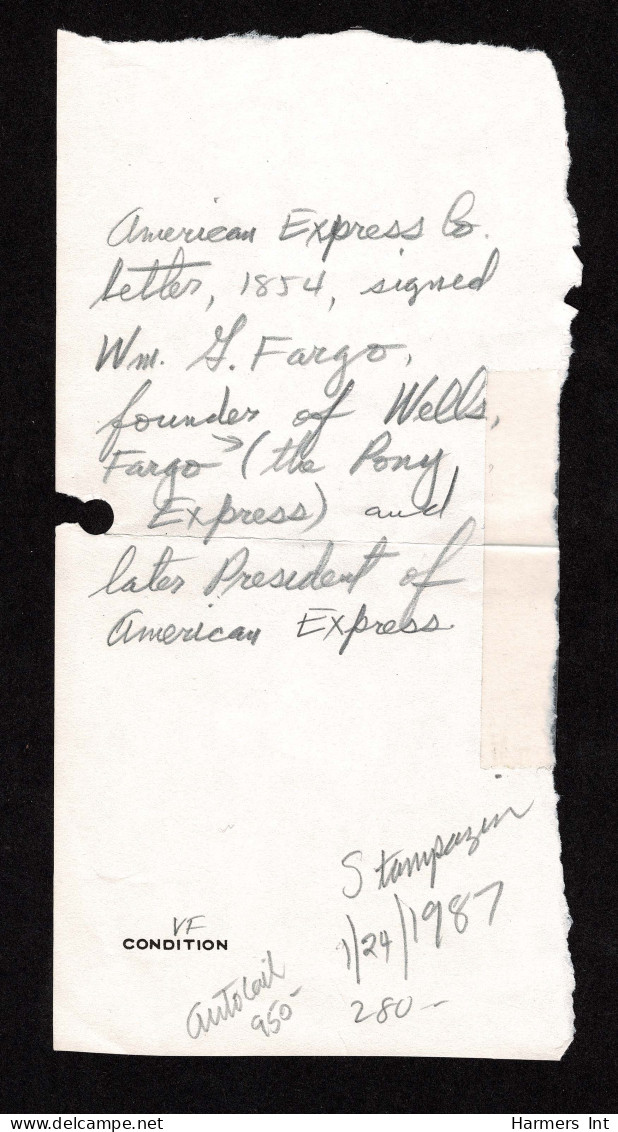 American Express Co.
letter, 1854, signed
Wm. G. Fargo,
founder of Wells,
Fargo (the Pony
Express) and
later President of
American Express
Stampazin
1/24/1987
280-
VF
CONDITION
950-
delcampe.net
Harmers Int